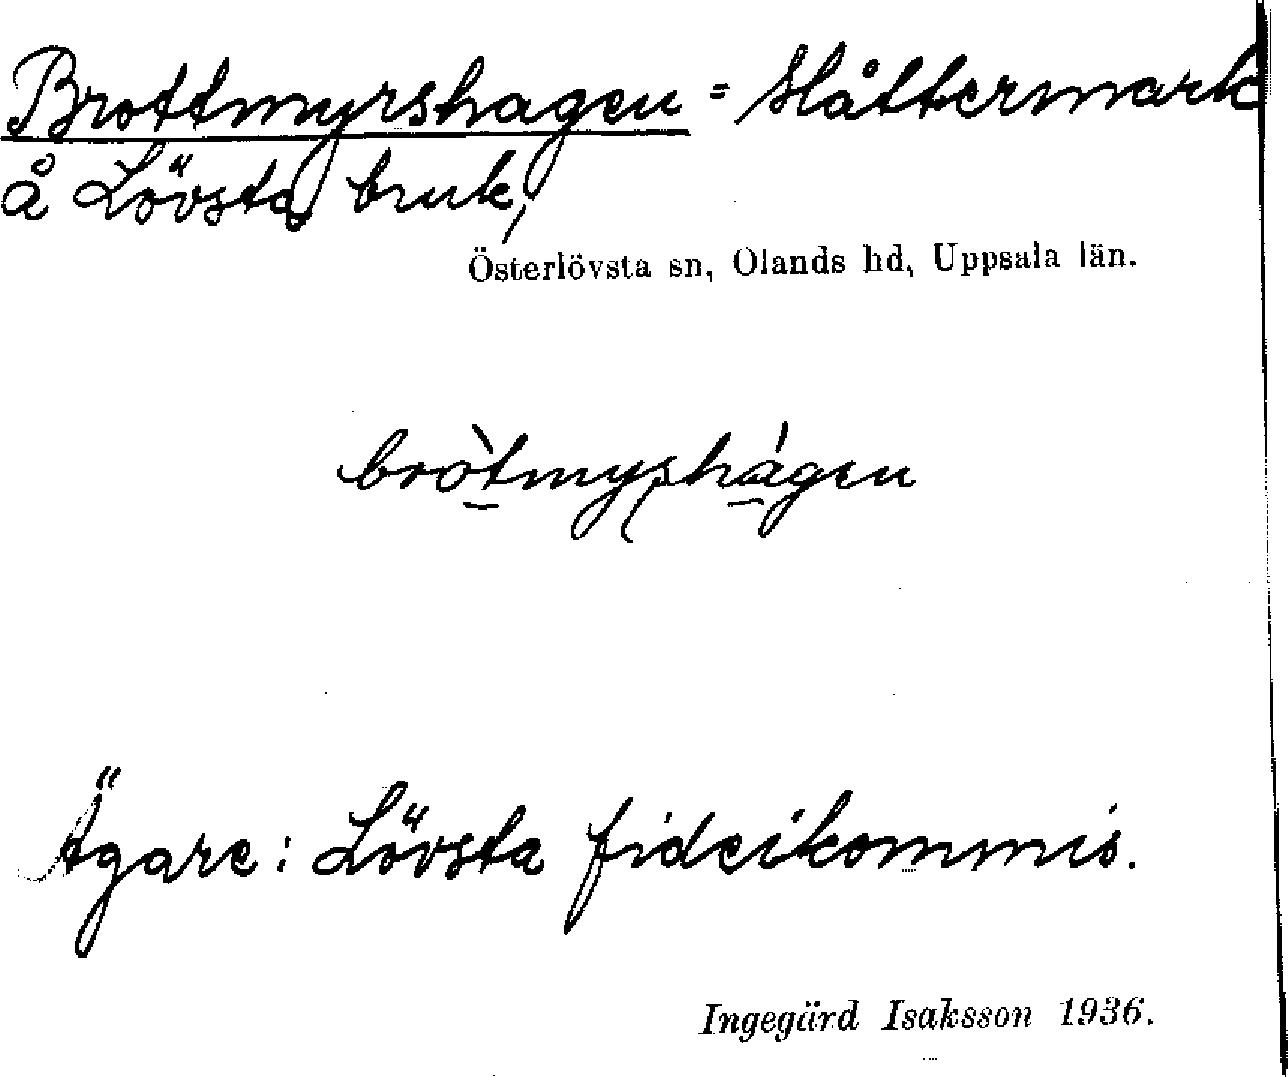 Brottmyrshagen = Slåttermark
å Lövsta bruk,
Österlövsta sn, Olands hd, Uppsala län.
bròtmyʂhágen
Ägare: Lövsta fideikommis.
Ingegärd Isaksson 1936.